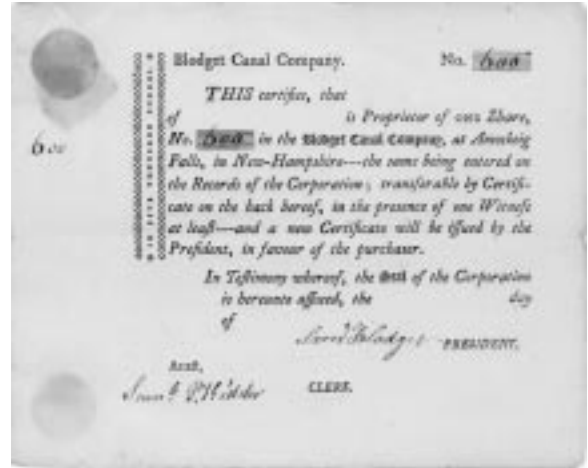 Blodget Canal Company. No. 600
THIS certifies, that
of is Proprietor of one Share,
600
No. 600 in the Blodget Canal Company, at Amoskeig
Falls, in New-Hampshire---the same being entered on
the Records of the Corporation; transferable by Certifi-
cate on the back hereof, in the presence of one Witness
at least---and a new Certificate will be issued by the
President, in favour of the purchaser.
In Testimony whereof, the Seal of the Corporation
is hereunto affixed, the day
of
Sam Blodget PRESIDENT.
Attest,
Sam P. Kidder CLERK.